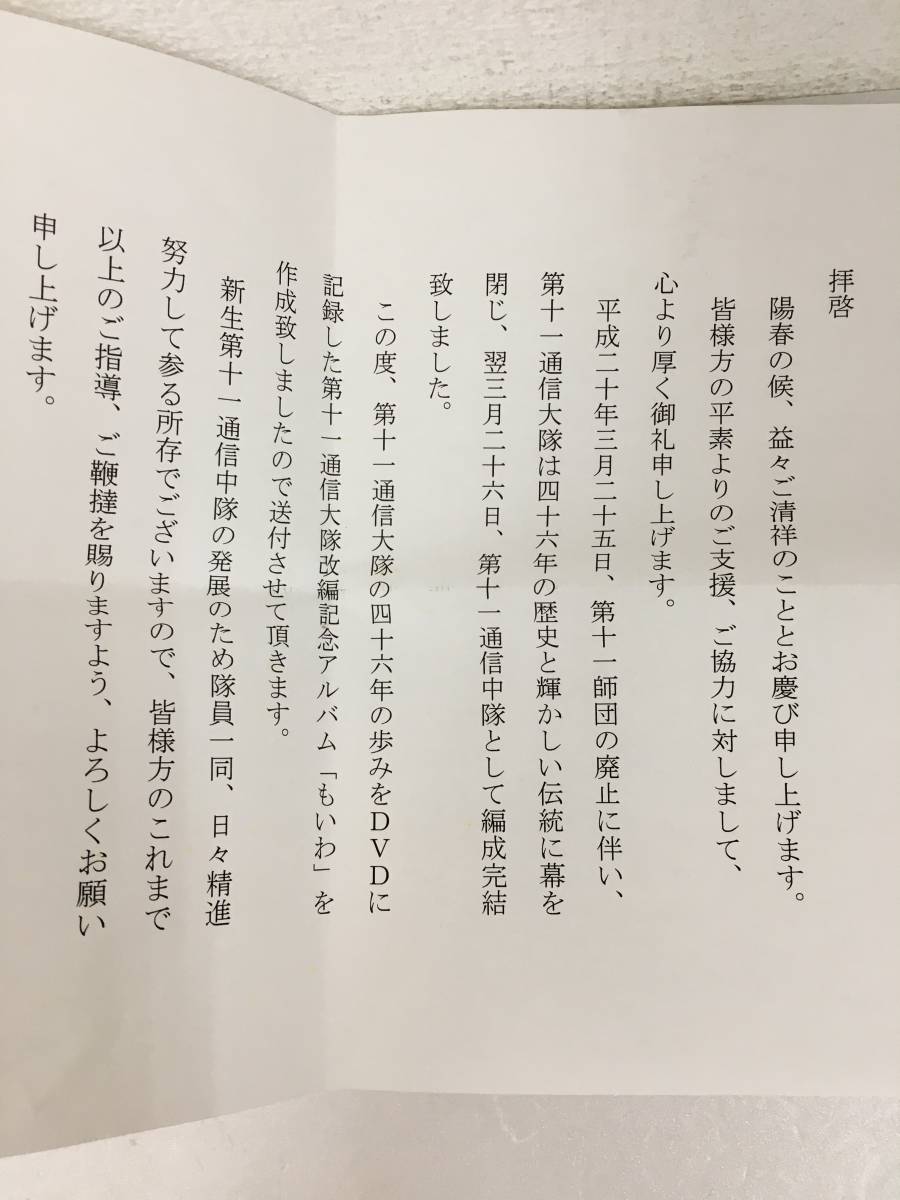 拝啓
陽春の候、益々ご清祥のこととお慶び申し上げます。
皆様方の平素よりのご支援、ご協力に対しまして、
心より厚く御礼申し上げます。
平成二十年三月二十五日、第十一師団の廃止に伴い、
第十一通信大隊は四十六年の歴史と輝かしい伝統に幕を
閉じ、翌三月二十六日、第十一通信中隊として編成完結
致しました。
この度、第十一通信大隊の四十六年の歩みをDVDに
記録した第十一通信大隊改編記念アルバム「もいわ」を
作成致しましたので送付させて頂きます。
新生第十一通信中隊の発展のため隊員一同、日々精進
努力して参る所存でございますので、皆様方のこれまで
以上のご指導、ご鞭撻を賜りますよう、よろしくお願い
申し上げます。